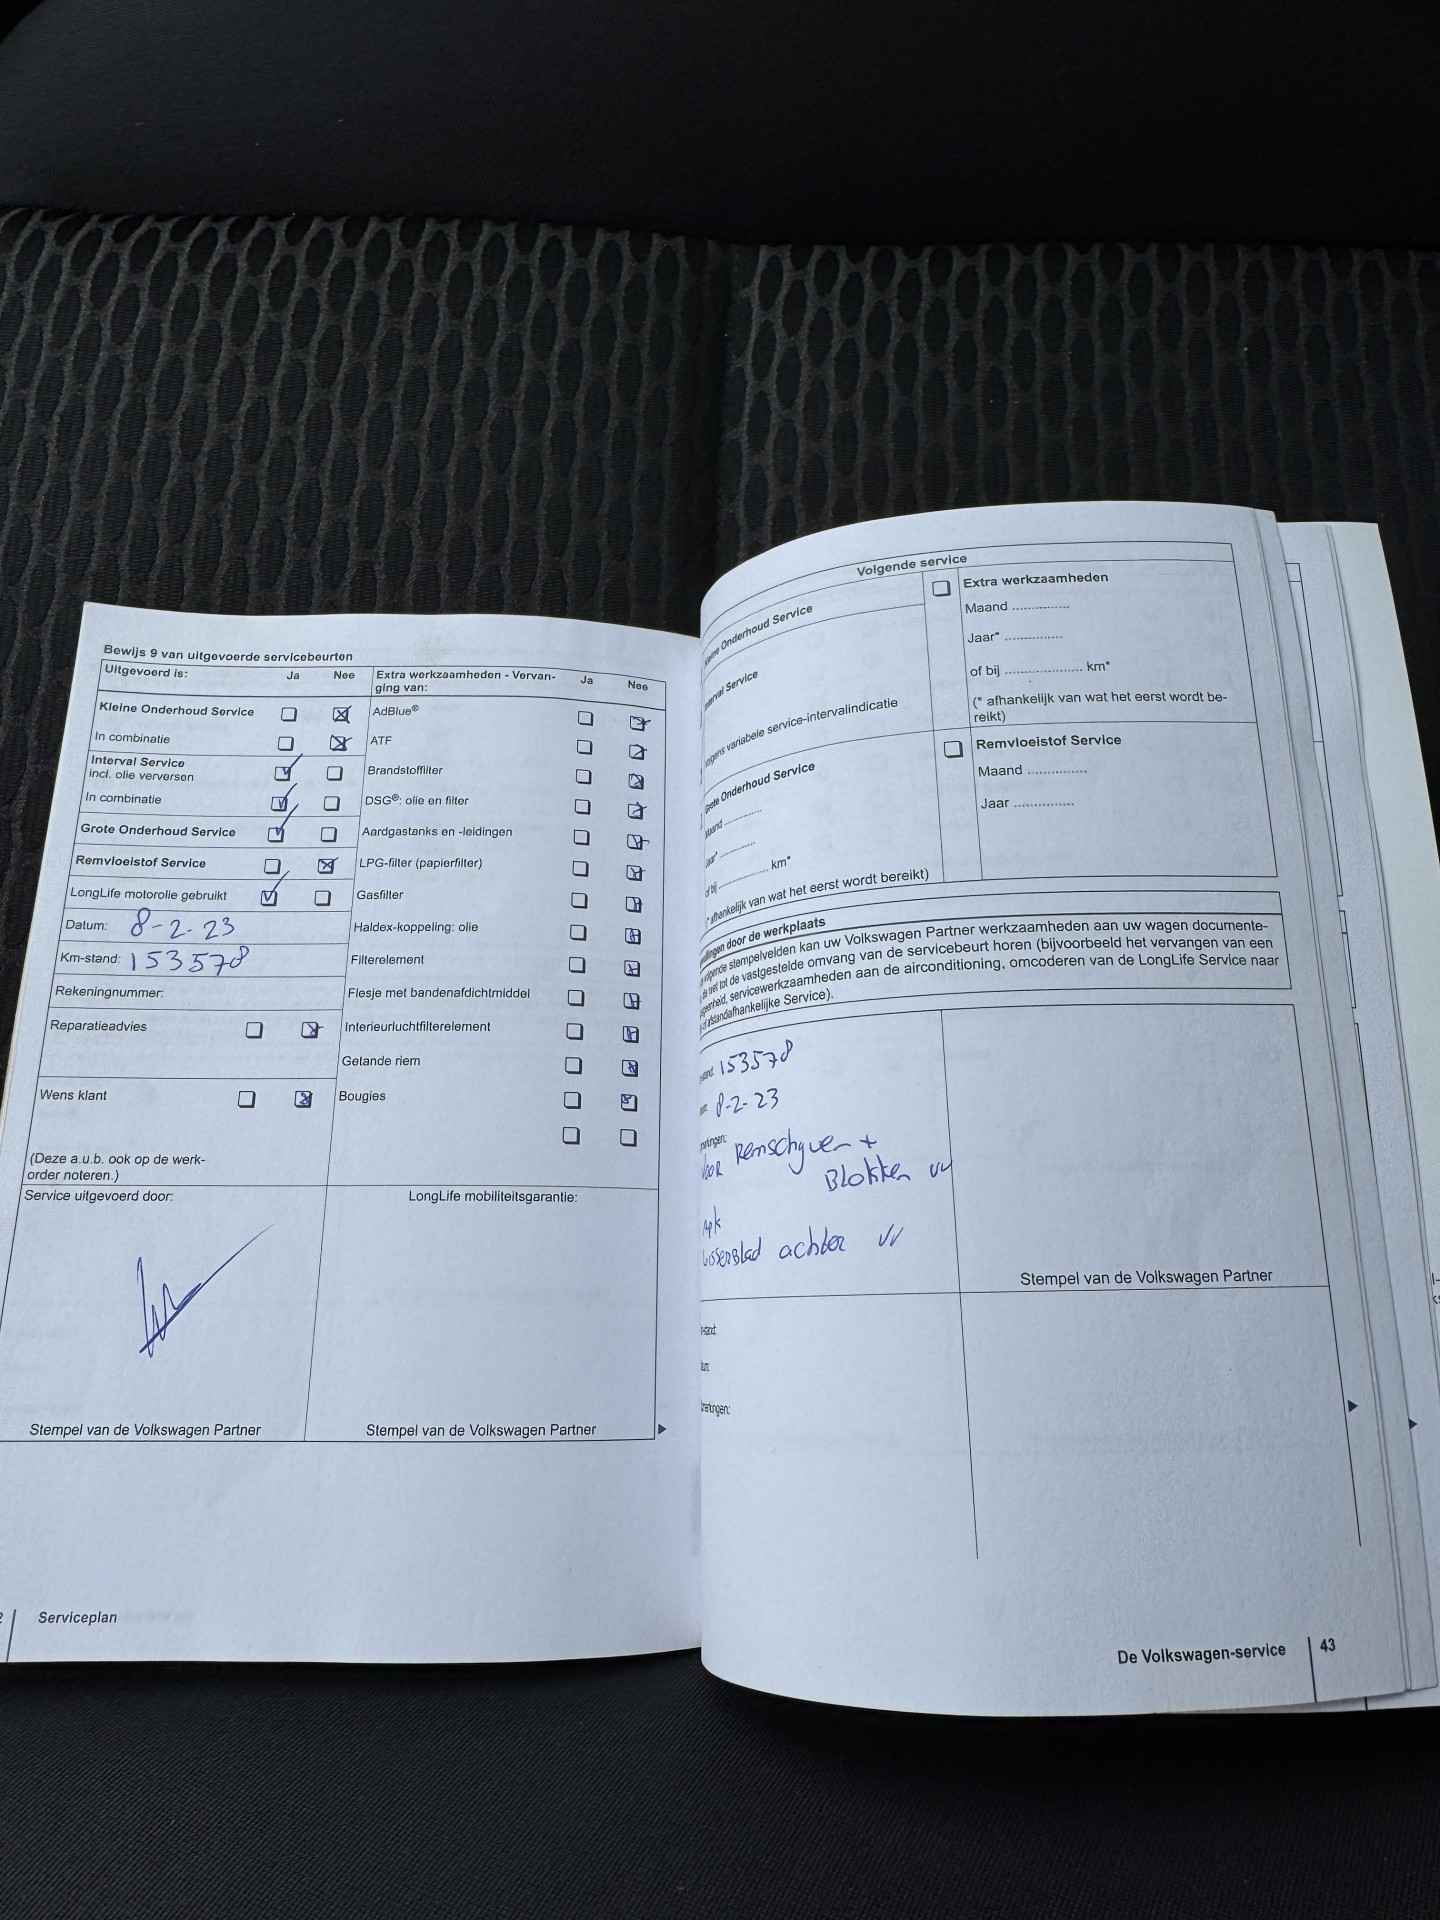 Bewijs 9 van uitgevoerde servicebeurten
Uitgevoerd is: Ja Nee
Kleine Onderhoud Service
In combinatie
Interval Service
incl. olie verversen
In combinatie
Grote Onderhoud Service
Remvloeistof Service
LongLife motorolie gebruikt
Datum: 8-2-23
Km-stand: 153578
Rekeningnummer:
Reparatieadvies
Wens klant
(Deze a.u.b. ook op de werk-
order noteren.)
Extra werkzaamheden - Vervan-
ging van: Ja Nee
AdBlue®
ATF
Brandstoffilter
DSG®: olie en filter
Aardgastanks en -leidingen
LPG-filter (papierfilter)
Gasfilter
Haldex-koppeling: olie
Filterelement
Flesje met bandenafdichtmiddel
Interieurluchtfilterelement
Getande riem
Bougies
Service uitgevoerd door:
Stempel van de Volkswagen Partner
LongLife mobiliteitsgarantie:
Stempel van de Volkswagen Partner
Serviceplan
Volgende service
Kleine Onderhoud Service
Interval Service
variabele service-intervalindicatie
Grote Onderhoud Service
Maand ..............
Jaar* ..............
of bij .................... km*
(* afhankelijk van wat het eerst wordt bereikt)
Extra werkzaamheden
Maand ...............
Jaar* ...............
of bij .................... km*
(* afhankelijk van wat het eerst wordt be-
reikt)
Remvloeistof Service
Maand ...............
Jaar ...............
door de werkplaats
volgende stempelvelden kan uw Volkswagen Partner werkzaamheden aan uw wagen documente-
tot de vastgestelde omvang van de servicebeurt horen (bijvoorbeeld het vervangen van een
servicewerkzaamheden aan de airconditioning, omcoderen van de LongLife Service naar
Service).
153578
8-2-23
Voor Remschyven +
Blokken vv
Apk
achter vv
Stempel van de Volkswagen Partner
De Volkswagen-service 43